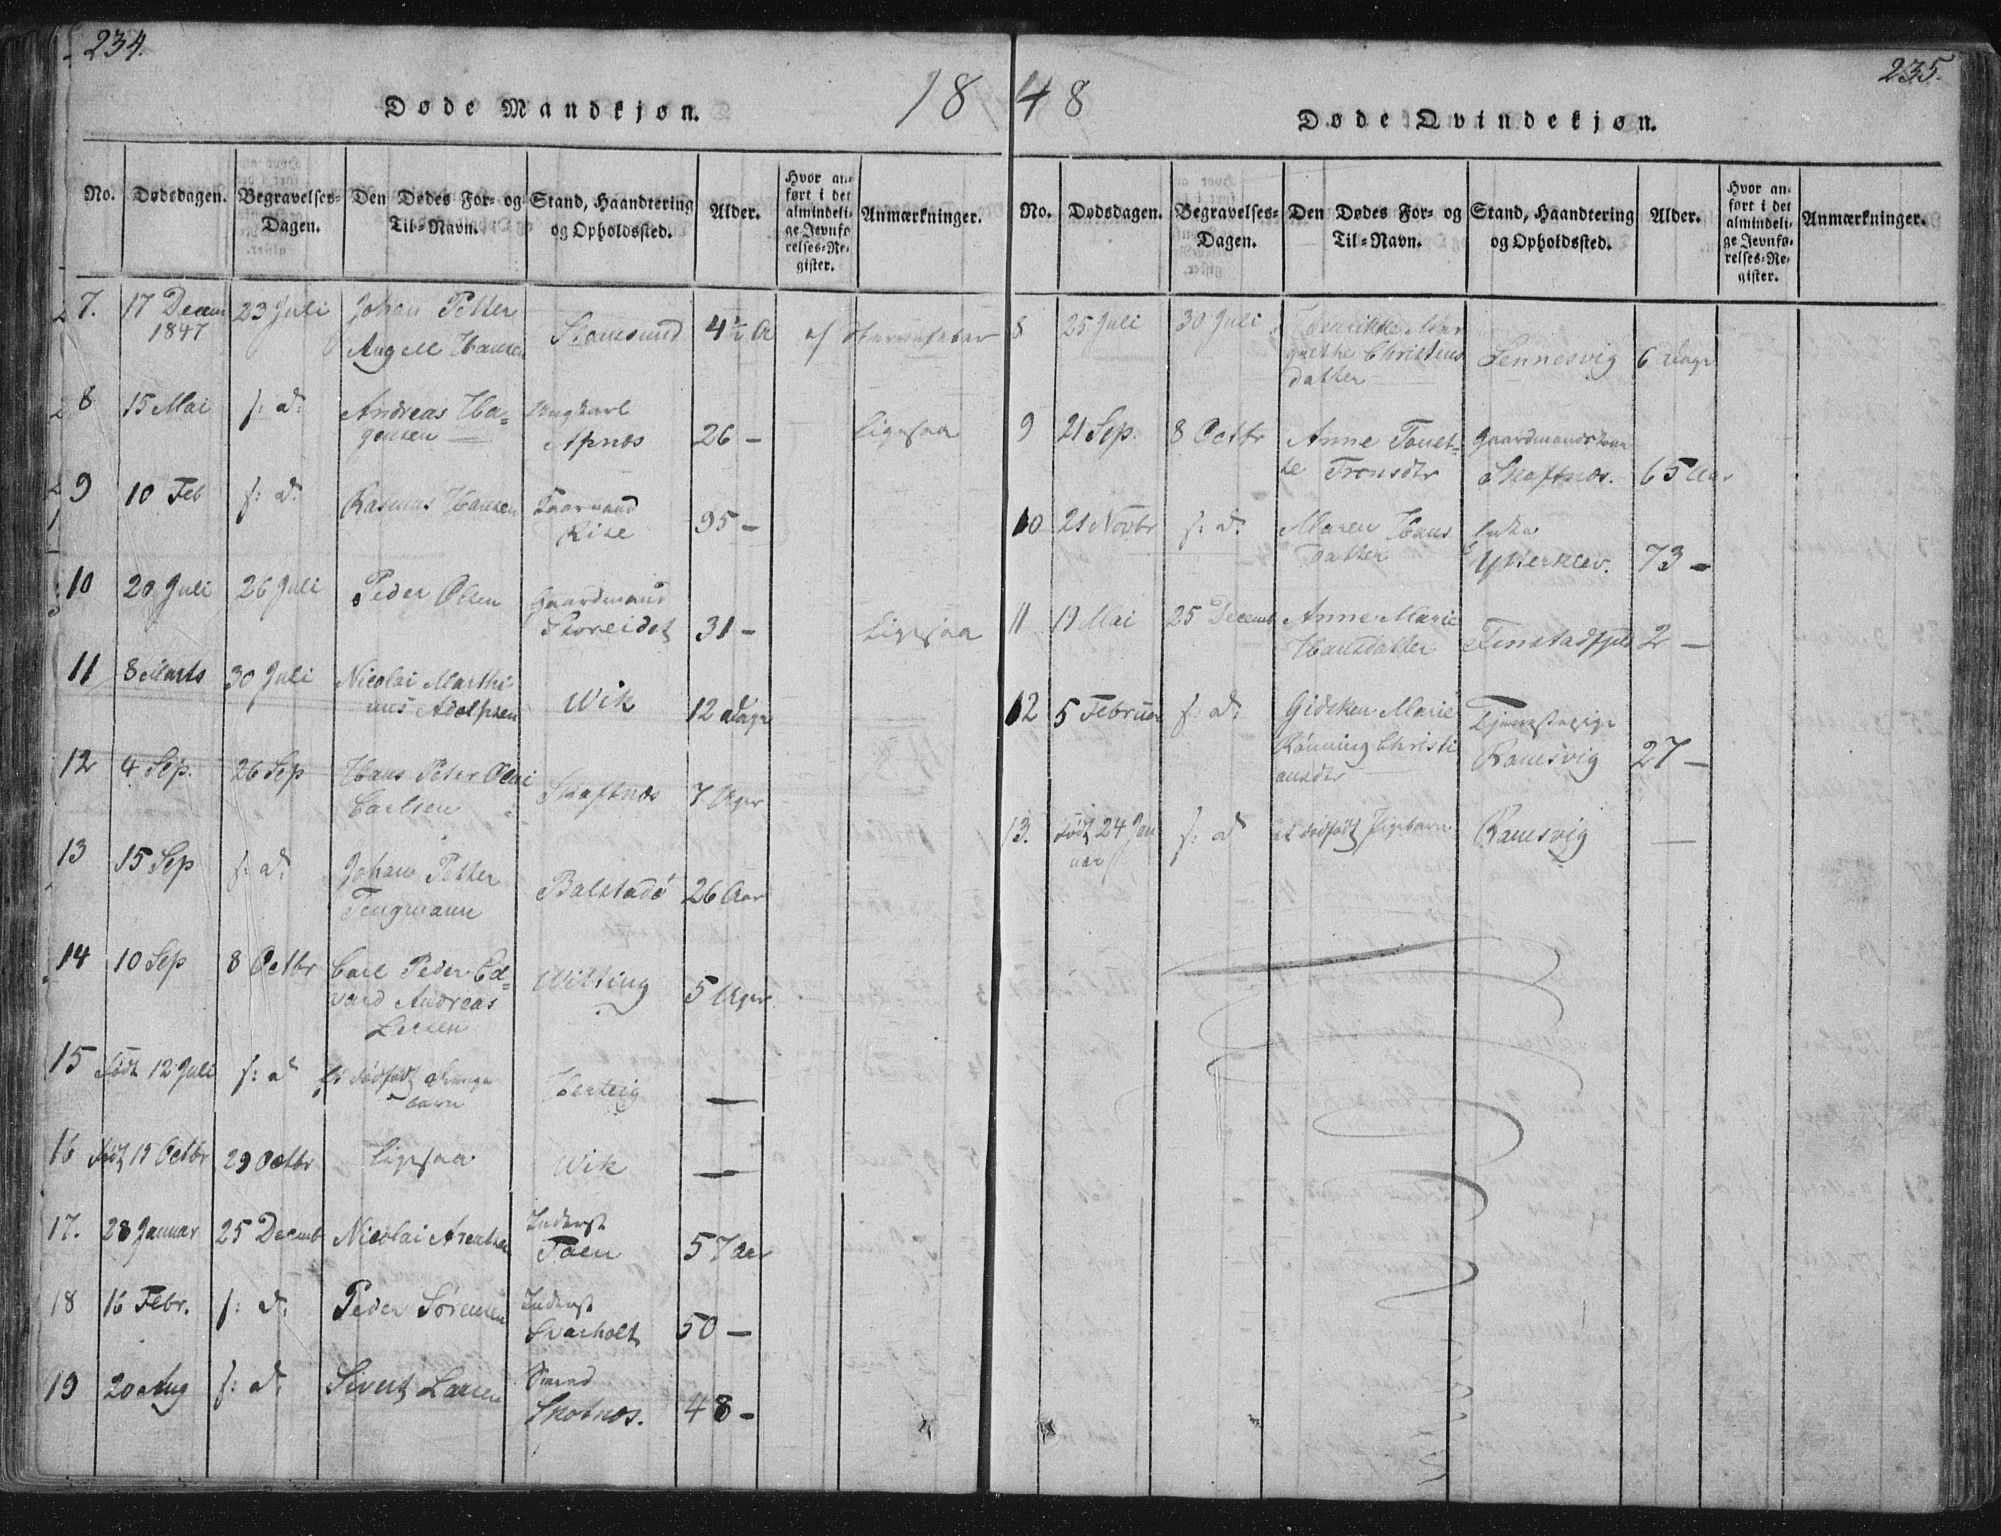 234.
Døde Mandkjøn.
18
No.
Dødsdagen.
Begravelses-
Dagen.
Den Dødes For- og
Til-Navn.
Stand, Haandtering
og Opholdssted.
Alder.
Hvor an-
ført i det
almindeli-
ge Jevnfø-
relses-Re-
gister.
Anmærkninger.
7. 17 Decem 23 Juli Johan Petter
1847
Angell Hansen Stamsund 4½ A af
8 15 Mai s: d: Andreas Ha- Ungkarl
gensen Apnæs 26 – Ligesaa
9 10 Feb s: d: Rasmus Hansen
95 –
10 20 Juli 26 Juli Peder Olsen Gaardmand
Storeidet 31 – Ligesaa
11 8 Marts 30 Juli Nicolai Marthi
nus Adolphsen Wik 12 Dage
12 4 Sep. 26 Sep Hans Peter Olai
Carlsen Skaftnæs 7 Uger
13 15 Sep s: d: Johan Petter
Tengmann Balstad 26 Aar
14 10 Sep 8 Octbr Carl Peder Ed-
vard Andreas
Larsen Witting 5 Uger
15 Født 12 Juli s: d Et dødfødt Drenge
barn —
16 Født 19 Octbr 29 Octbr Ligesaa Wik —
17. 28 Januar 25 Decemb Nicolai Arentsen Inderst
57 Aar
18 16 Febr. s: d: Peder Sørensen Inderst
Svarholt 50 –
19 20 Aug s: d: Sivert Larsen
Skotnæs. 48 –
235.
48
Døde Qvindekjøn.
No.
Dødsdagen.
Begravelses-
Dagen.
Den Dødes For- og
Til-Navn.
Stand, Haandtering
og Opholdssted.
Alder.
Hvor an-
ført i det
almindeli-
ge Jevnfø-
relses-Re-
gister.
Anmærkninger.
8 25 Juli 30 Juli Mar
grethe Christens
datter Sennesvig 6 Dage
9 21 Sep. 8 Octbr Anne Tonet- Gaardmandskone
te Tronsdtr Skaftnæs. 65 Aar
10 21 Novbr s: d: Maren Hans
datter 73 –
11 19 Mai 25 Decemb Anne Marie
Hansdatter Finstadfjeld 2 –
12 5 Februar s: d: Gidsken Marie Tjenestepige
Rønning Christi
ansdtr Ramsvig 27 –
13. Født 24 Jan s: d et dødfødt Pigebarn Ramsvig —
uar